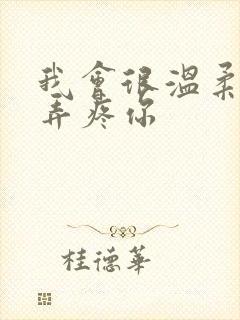 我會很溫柔
弄疼你
桂德華